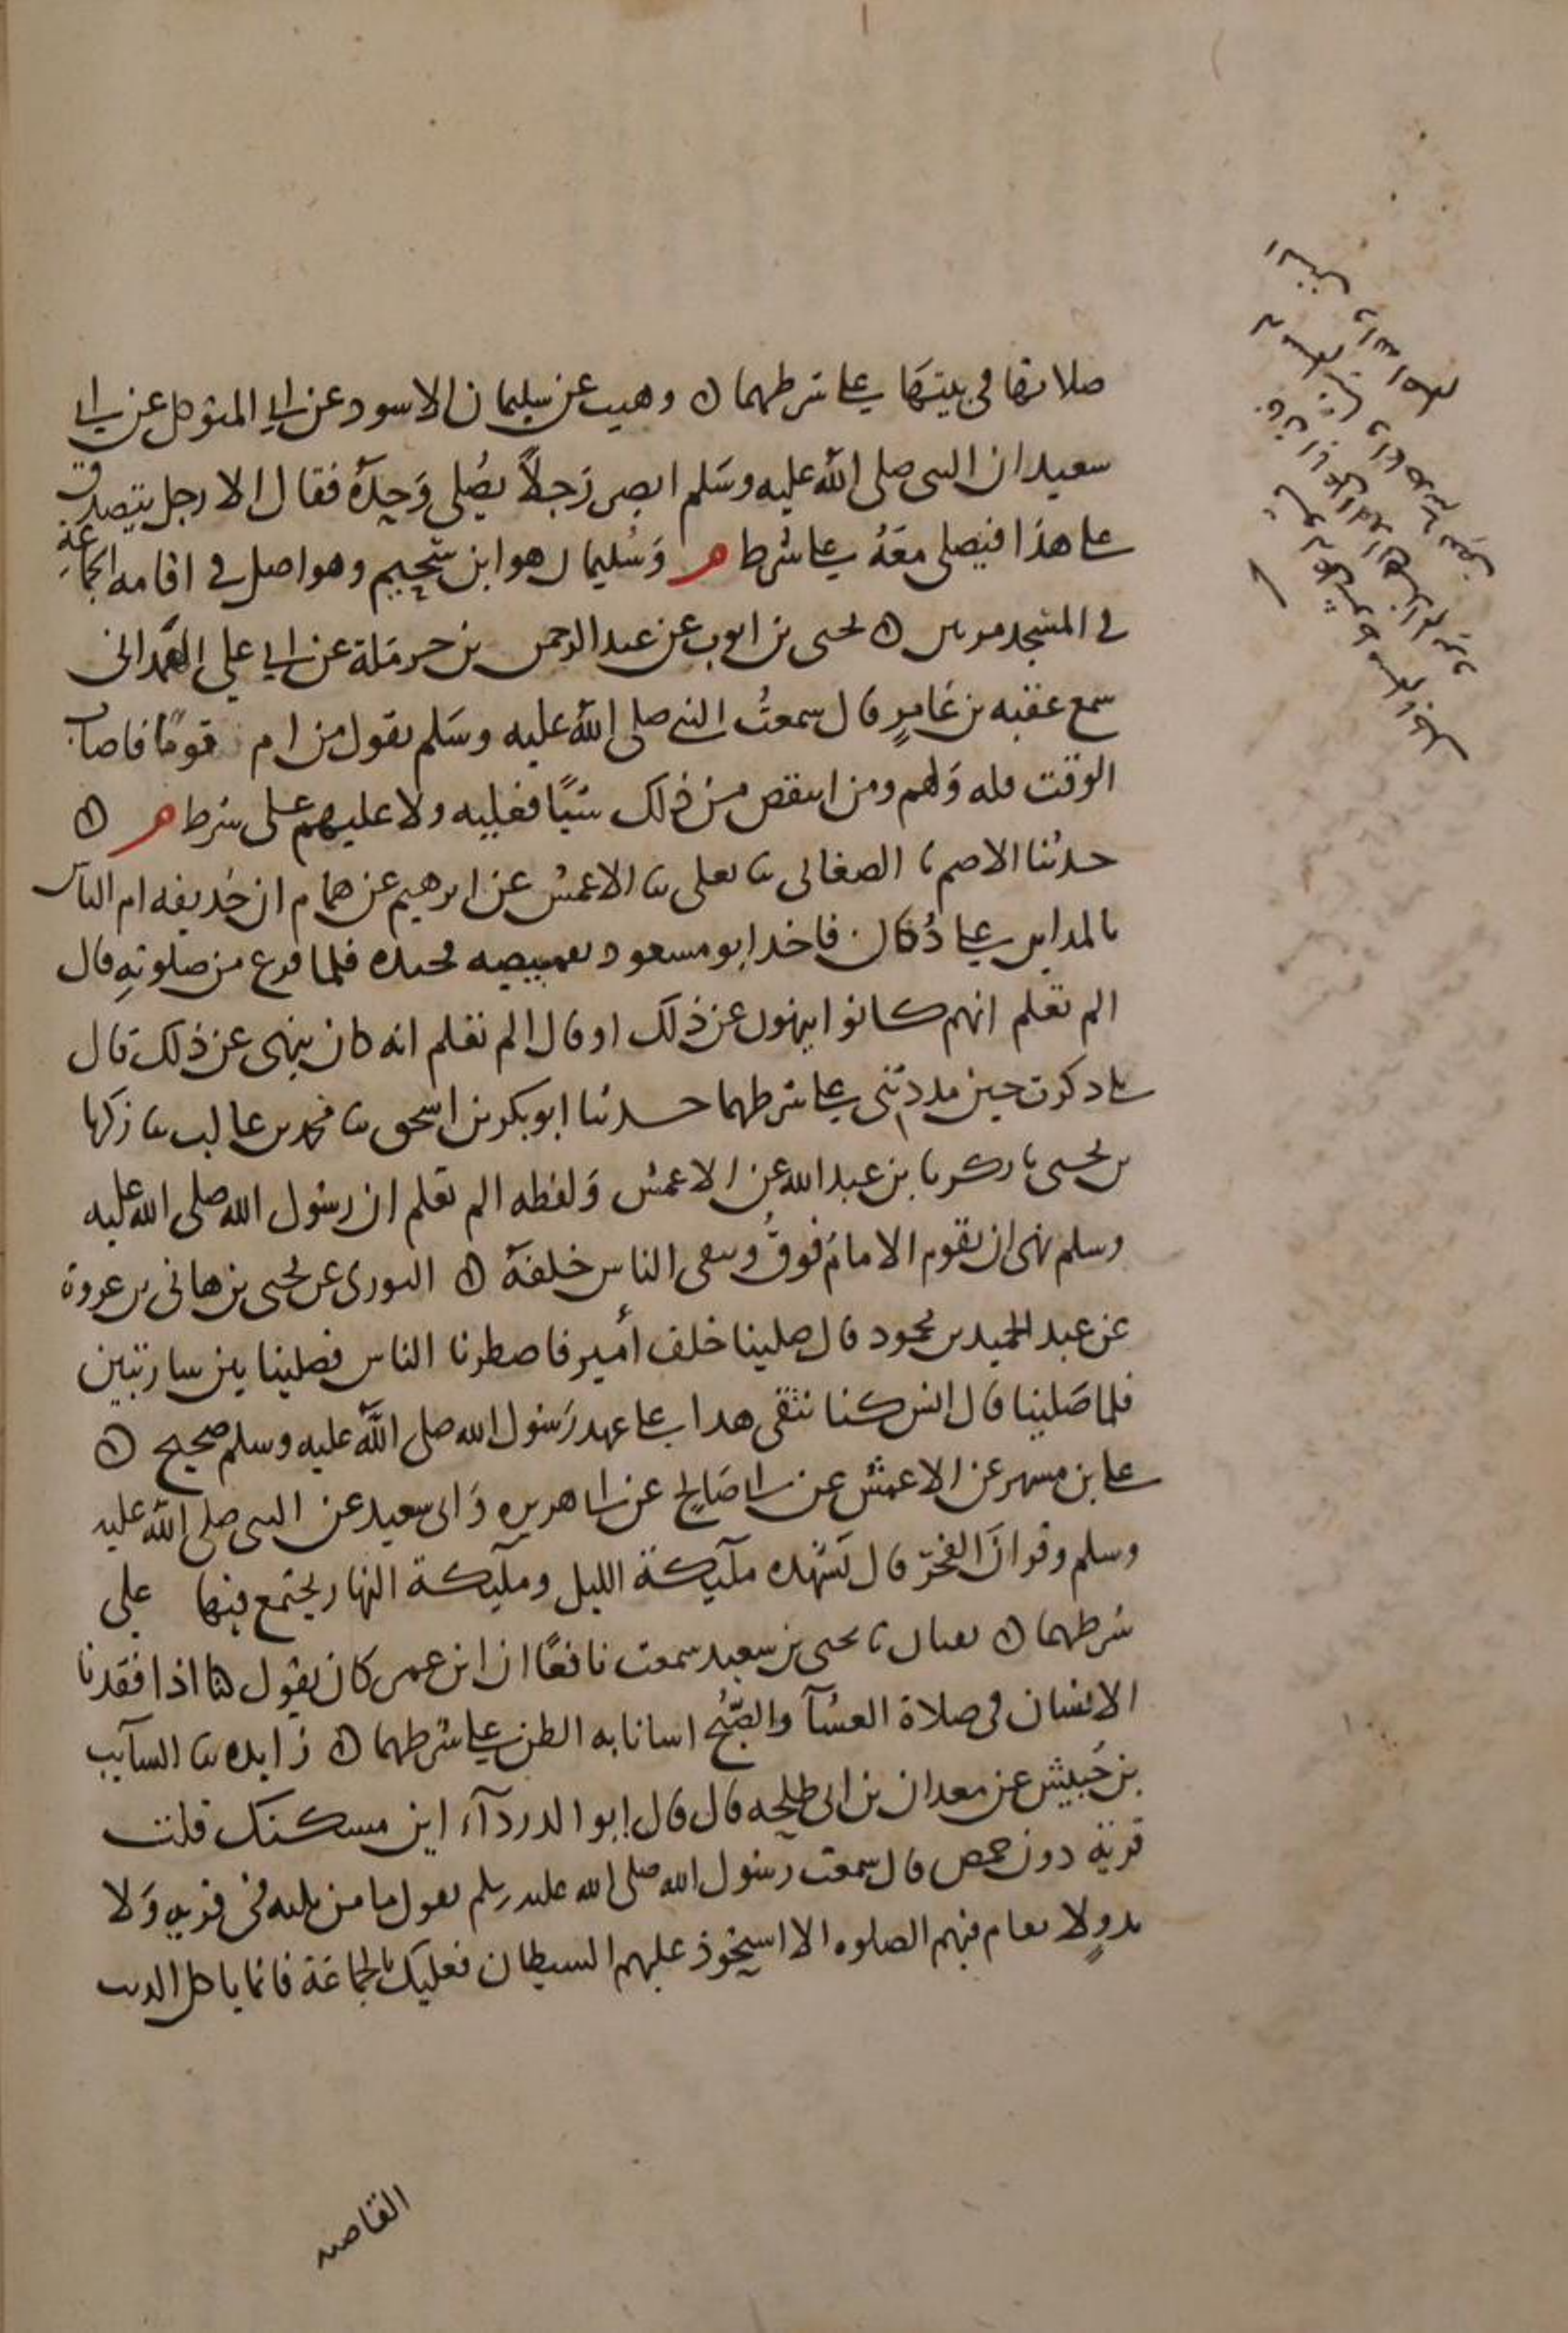 صلاتها في بيتها على شرطهما ۞ وهيب عن سليمان الاسود عن ابي المتوكل عن ابي
سعيد ان النبى صلى الله عليه وسلم ابصر رجلاً يصلى وحده فقال الا رجل يتصدق
على هذا فيصلى معه على شرط م وسليمان هو ابن سحيم وهو اصل في اقامه الجماعة
في المسجد مرتين ۞ يحيى بن ايوب عن عبد الرحمن بن حرملة عن ابي علي الهمدانى
سمع عقبه بن عامرٍ قال سمعتُ النبي صلى الله عليه وسلم يقول من ام قومًا فاصاب
الوقت فله ولهم ومن انتقص من ذلك شيًا فعليه ولا عليهم على شرط م ۞
حدثنا الاصم نا الصغانى نا يعلى نا الاعمش عن ابرهيم عن همام ان حذيفه ام الناس
بالمداين على دُكان فاخذ ابو مسعود بقميصه فجبذه فلما فرغ من صلوته قال
الم تعلم انهم كانوا ينهون عن ذلك او قال الم تعلم انه كان ينهى عن ذلك قال
بلى ذكرت حين مددتنى على شرطهما حدثنا ابو بكر بن اسحق نا محمد بن غالب نا زكريا
بن يحيى نا زكريا بن عبد الله عن الاعمش ولفظه الم تعلم ان رسول الله صلى الله عليه
وسلم نهى ان يقوم الامام فوق ويبقى الناس خلفه ۞ الثورى عن يحيى بن هانى بن عروة
عن عبد الحميد بن محمود قال صلينا خلف أمير فاضطرنا الناس فصلينا بين ساريتين
فلما صلينا قال انس كنا نتقى هذا على عهد رسول الله صلى الله عليه وسلم صحيح ۞
على بن مسهر عن الاعمش عن ابى صالح عن ابى هريره وابى سعيد عن النبى صلى الله عليه
وسلم وقران الفجر قال تشهده ملآيكة الليل وملآيكة النهار يجتمع فيها على
شرطهما ۞ نا يحيى بن سعيد سمعت نافعًا ان ابن عمر كان يقول كنا اذا فقدنا
الانسان في صلاة العشآ والصبح اسانا به الظن على شرطهما ۞ زايده نا السآيب
بن حُبيش عن معدان بن ابى طلحه قال قال ابو الدردآء اين مسكنك قلت
قرية دون حمص قال سمعت رسول الله صلى الله عليه وسلم يقول ما من ثلثه في قريه ولا
بدوٍ لا تقام فيهم الصلوه الا استحوذ عليهم الشيطان فعليك بالجماعة فانما ياكل الذيب
القاصيه